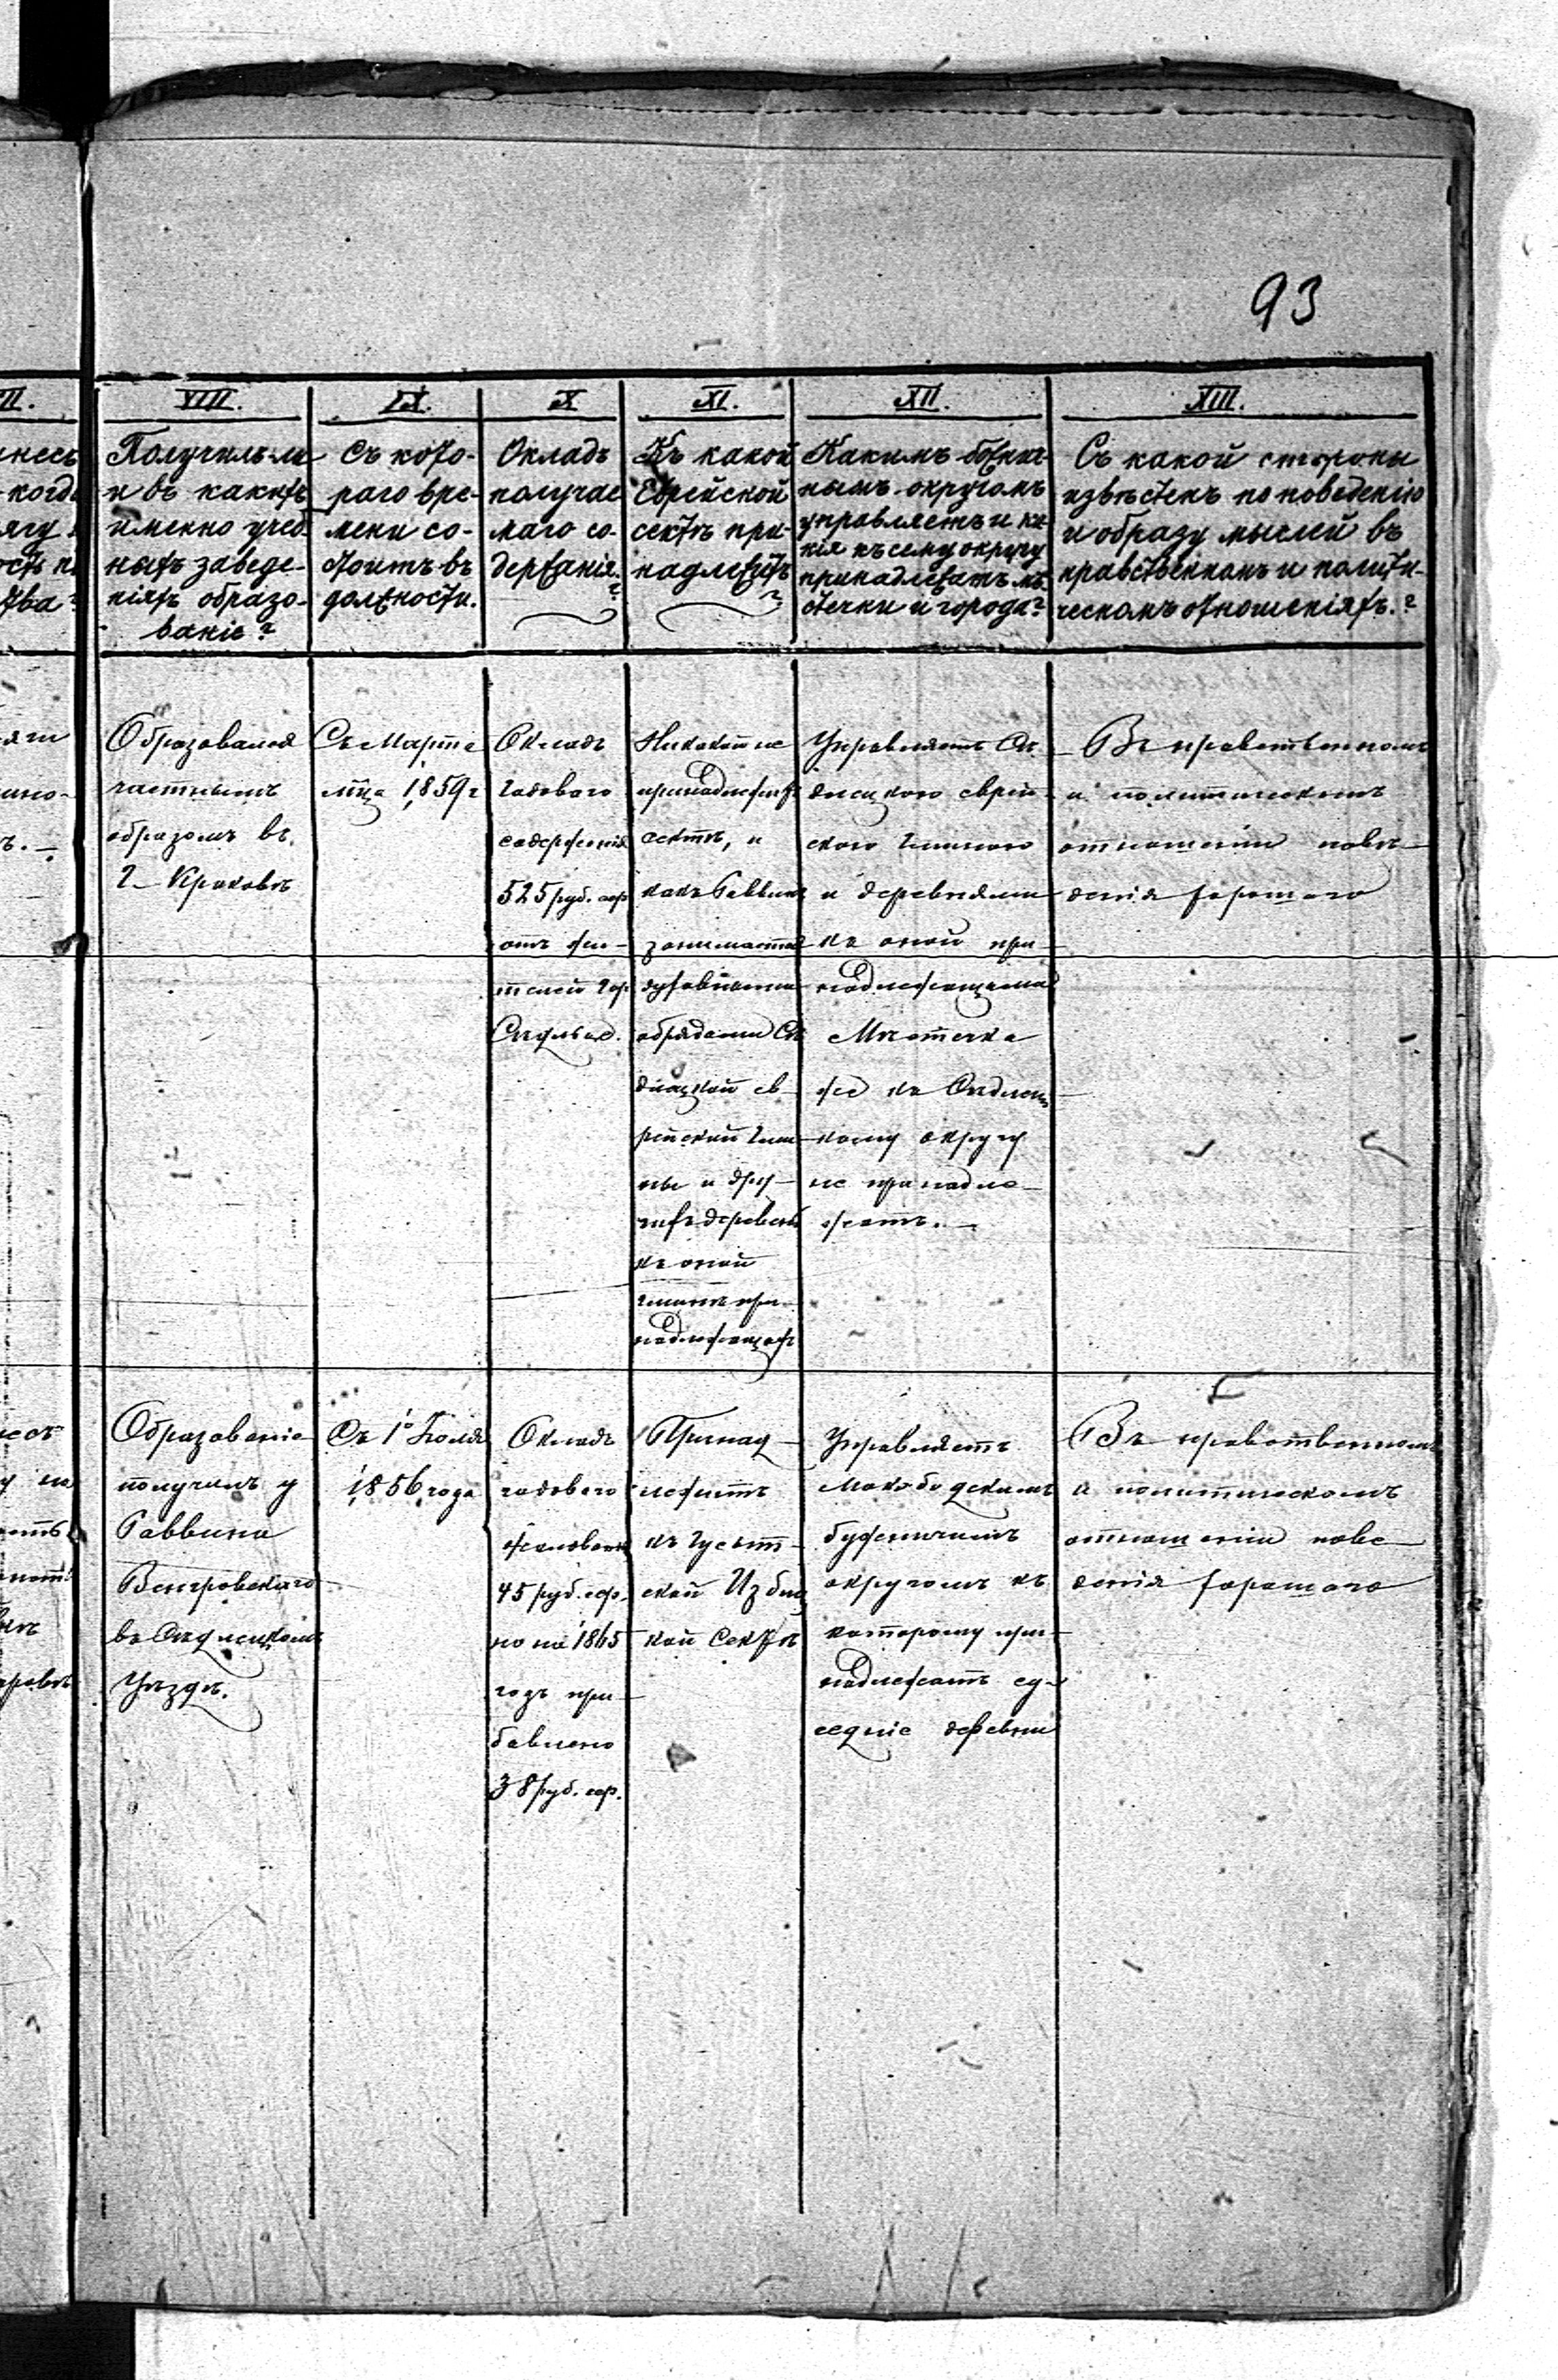 93
VIII.
Получилъ-ли
и въ какихъ
именно учеб-
ныхъ заведе-
нiяхъ образо-
ванiе?
IX.
Съ кото-
раго вре-
мени со-
стоитъ въ
должности.
X
Окладъ
получае
маго со-
держанiя.
?
XI.
Къ какой
Еврейской
сектѣ при-
надлежитъ
?
XII.
Какимъ божнич-
нымъ округомъ
управляетъ и ка-
кiя къ сему округу
принадлежатъ мѣ-
стечки и города?
XIII.
Съ какой стороны
извѣстенъ по поведенiю
и образу мыслей въ
нравственномъ и полити-
ческомъ отношенiяхъ.?
Образовался
частнымъ
образомъ въ
г. Краковѣ
Съ Марта
мца 1859 г
Окладъ
годоваго
содержанiя
525 руб. сер
отъ жи-
телей гор
Сѣдльце.
принадлежитъ
сектѣ, и
какъ Раввинъ
занимается
духовными
обрядами Сѣ
длецкой ев-
рейской гми-
ны и дру-
гихъ деревень
къ оной
гминѣ при-
надлежащихъ
Управляетъ Сѣ-
длецкою еврей-
скою гминою
и деревнями
къ оной при-
надлежащими
Мѣстечка
же къ Сѣдлец-
кому округу
не принадле-
жатъ.
Въ нравственномъ
и политическомъ
отношенiи пове-
денiя хорошаго
Образованiе
получилъ у
Раввина
Венгровскаго
въ Сѣдлецкомъ
Уѣздѣ.
Съ 1го Iюля
1856 года
Окладъ
годоваго
жалованя
45 руб. сер.
но на 1865
годъ при-
бавлено
38 руб. сер.
Принад-
лежитъ
къ
ской Избиц
кой Сектѣ
Управляетъ
Мокободскимъ
бужничнымъ
округомъ къ
которому при-
надлежатъ
деревни
Въ нравственномъ
и политическомъ
отношенiи пове-
денiя хорошаго